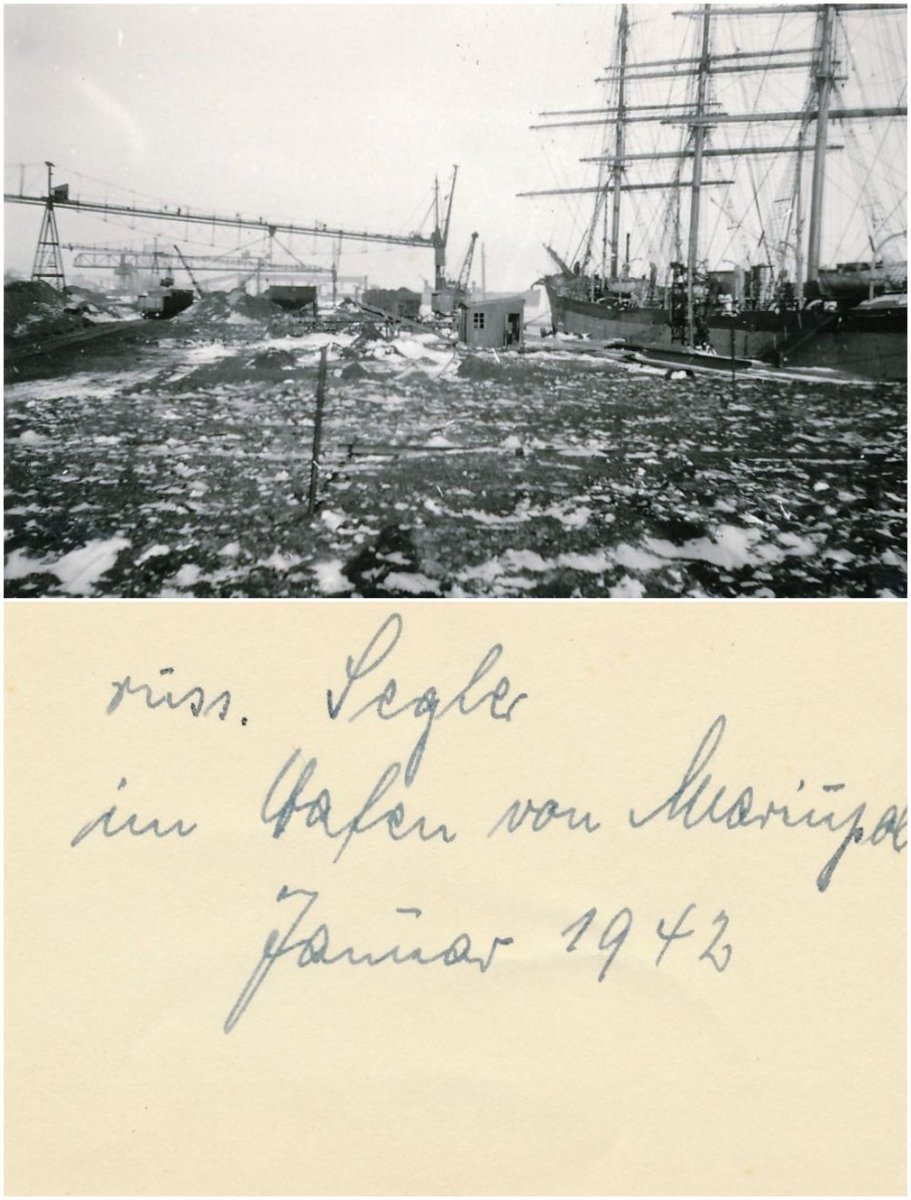 russ. Segler
im Hafen von Mariupol
Januar 1942